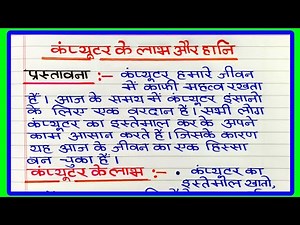 कंप्यूटर के लाभ और हानि
प्रस्तावना :- कंप्यूटर हमारे जीवन
में काफी महत्व रखता
हैं। आज के समय में कंप्यूटर इंसानो
के लिए एक वरदान हैं। सभी लोग
कंप्यूटर का इस्तेमाल कर के अपने
काम आसान करते हैं। जिसके कारण
यह आज के जीवन का एक हिस्सा
बन चुका हैं।
कंप्यूटर के लाभ :- • कंप्यूटर का
इस्तेमाल खातो,